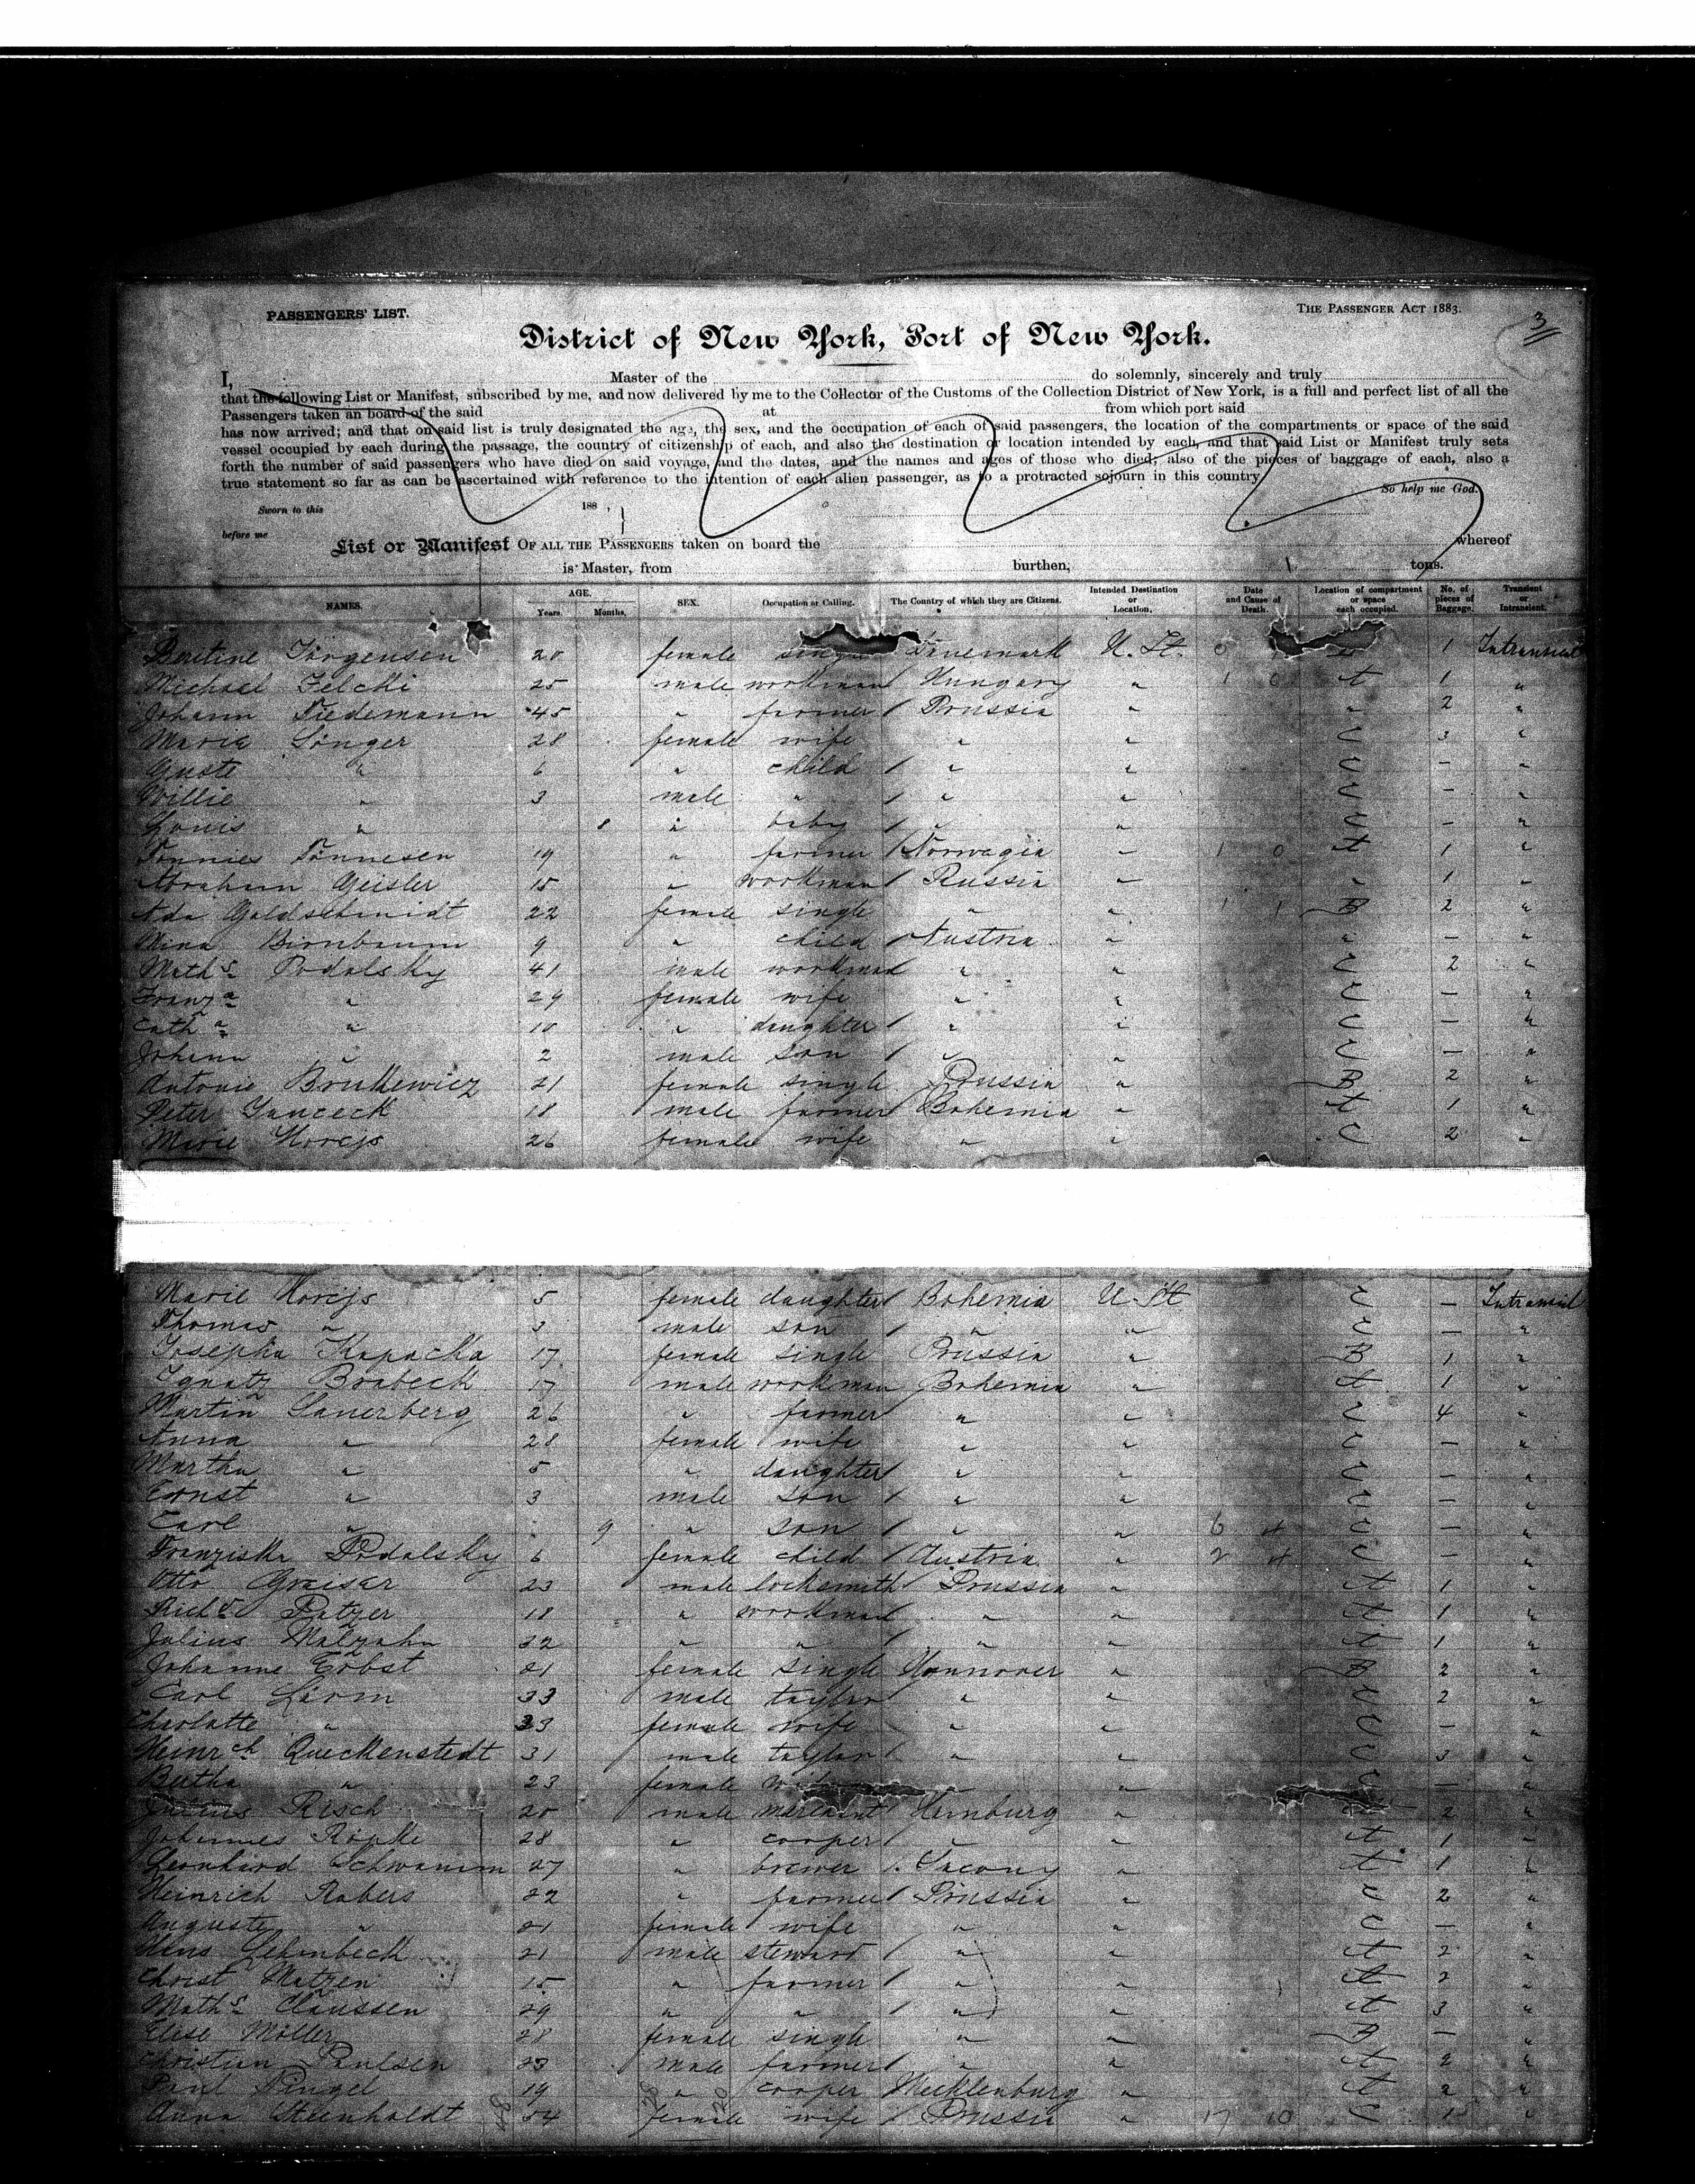 PASSENGERS' LIST.
THE PASSENGER ACT 1883.
3
District of New York, Port of New York.
I, Master of the do solemnly, sincerely and truly
that the following List or Manifest, subscribed by me, and now delivered by me to the Collector of the Customs of the Collection District of New York, is a full and perfect list of all the
Passengers taken an board of the said at from which port said
has now arrived; and that on said list is truly designated the age, the sex, and the occupation of each of said passengers, the location of the compartments or space of the said
vessel occupied by each during the passage, the country of citizenship of each, and also the destination or location intended by each, and that said List or Manifest truly sets
forth the number of said passengers who have died on said voyage, and the dates, and the names and ages of those who died; also of the pieces of baggage of each, also a
true statement so far as can be ascertained with reference to the intention of each alien passenger, as to a protracted sojourn in this country.
So help me God.
Sworn to this 188 ,
before me
List or Manifest OF ALL THE PASSENGERS taken on board the whereof
is Master, from burthen, tons.
NAMES. AGE. Years. Months. SEX. Occupation or Calling. The Country of which they are Citizens. Intended Destination or Location. Date and Cause of Death. Location of compartment or space each occupied. No. of pieces of Baggage. Transient or Intransient.
Bertine Jörgensen 20 female Dänemark U. St. 1 Intransient
Michael 25 male workman Hungary " 1 0 A 1 "
Johann Tiedemann 45 " farmer Prussia " " 2 "
Maria Sänger 28 female wife " " C 3 "
Guste " 6 " child " " C - "
Willie " 3 male " " " C - "
Louis " 8 " baby " " C - "
Tönnies Tönnesen 19 " farmer Norwegia " 1 0 A 1 "
Abraham Geisler 15 " workman Russia " " 1 "
Ada Goldschmidt 22 female single " " 1 1 B 2 "
Mina Birnbaum 9 " child Austria " " - "
Maths Podalsky 41 male workman " " C 2 "
Franza " 29 female wife " " C - "
Catha " 10 " daughter " " C - "
Johann " 2 male son " " C - "
Antonie Brukewicz 21 female single Prussia " B 2 "
Peter Janceck 18 male farmer Bohemia " A 1 "
Marie Horejs 26 female wife " " C 2 "
Marie Horejs 5 female daughter Bohemia U. St C - Intransient
Thomas " 3 male son " " C - "
Josepha Kapacka 17 female single Prussia " B 1 "
Ignatz Brabeck 17 male workman Bohemia " A 1 "
Martin Sauerberg 26 " farmer " " C 4 "
Anna " 28 female wife " " C - "
Martha " 5 " daughter " " C - "
Ernst " 3 male son " " C - "
Carl " 9 " son " " 6 4 C - "
Franziska Podalsky 6 female child Austria " 2 4 C - "
Otto Graiser 23 male locksmith Prussia " A 1 "
Richd Patzer 18 " workman " " A 1 "
Julius Malzahn 32 " " " " A 1 "
Johanne Erbst 21 female single Hannover " B 2 "
Carl 33 male taylor " " C 2 "
Charlotte " 33 female wife " " C - "
Heinrch Queckenstedt 31 male taylor " " C 3 "
Bertha " 23 female wife " " C - "
Julius Resch 20 male merchant Hamburg " 2 "
Johannes Röpke 28 " cooper " " A 1 "
Leonhard Schwamm 27 " brewer Saxony " A 1 "
Heinrich Rabers 22 " farmer Prussia " C 2 "
Auguste " 21 female wife " " C - "
Hans Lehmbeck 21 male steward " " A 2 "
Christ Matzen 15 " farmer " " A 2 "
Maths Claussen 29 " " " " A 3 "
Elise Möller 28 female single " " B - "
Christian Paulsen 23 male farmer " " A 2 "
Paul Pingel 19 " cooper Mecklenburg " A 2 "
Anna Steenholdt 54 female wife Prussia " 17 10 C 1 "